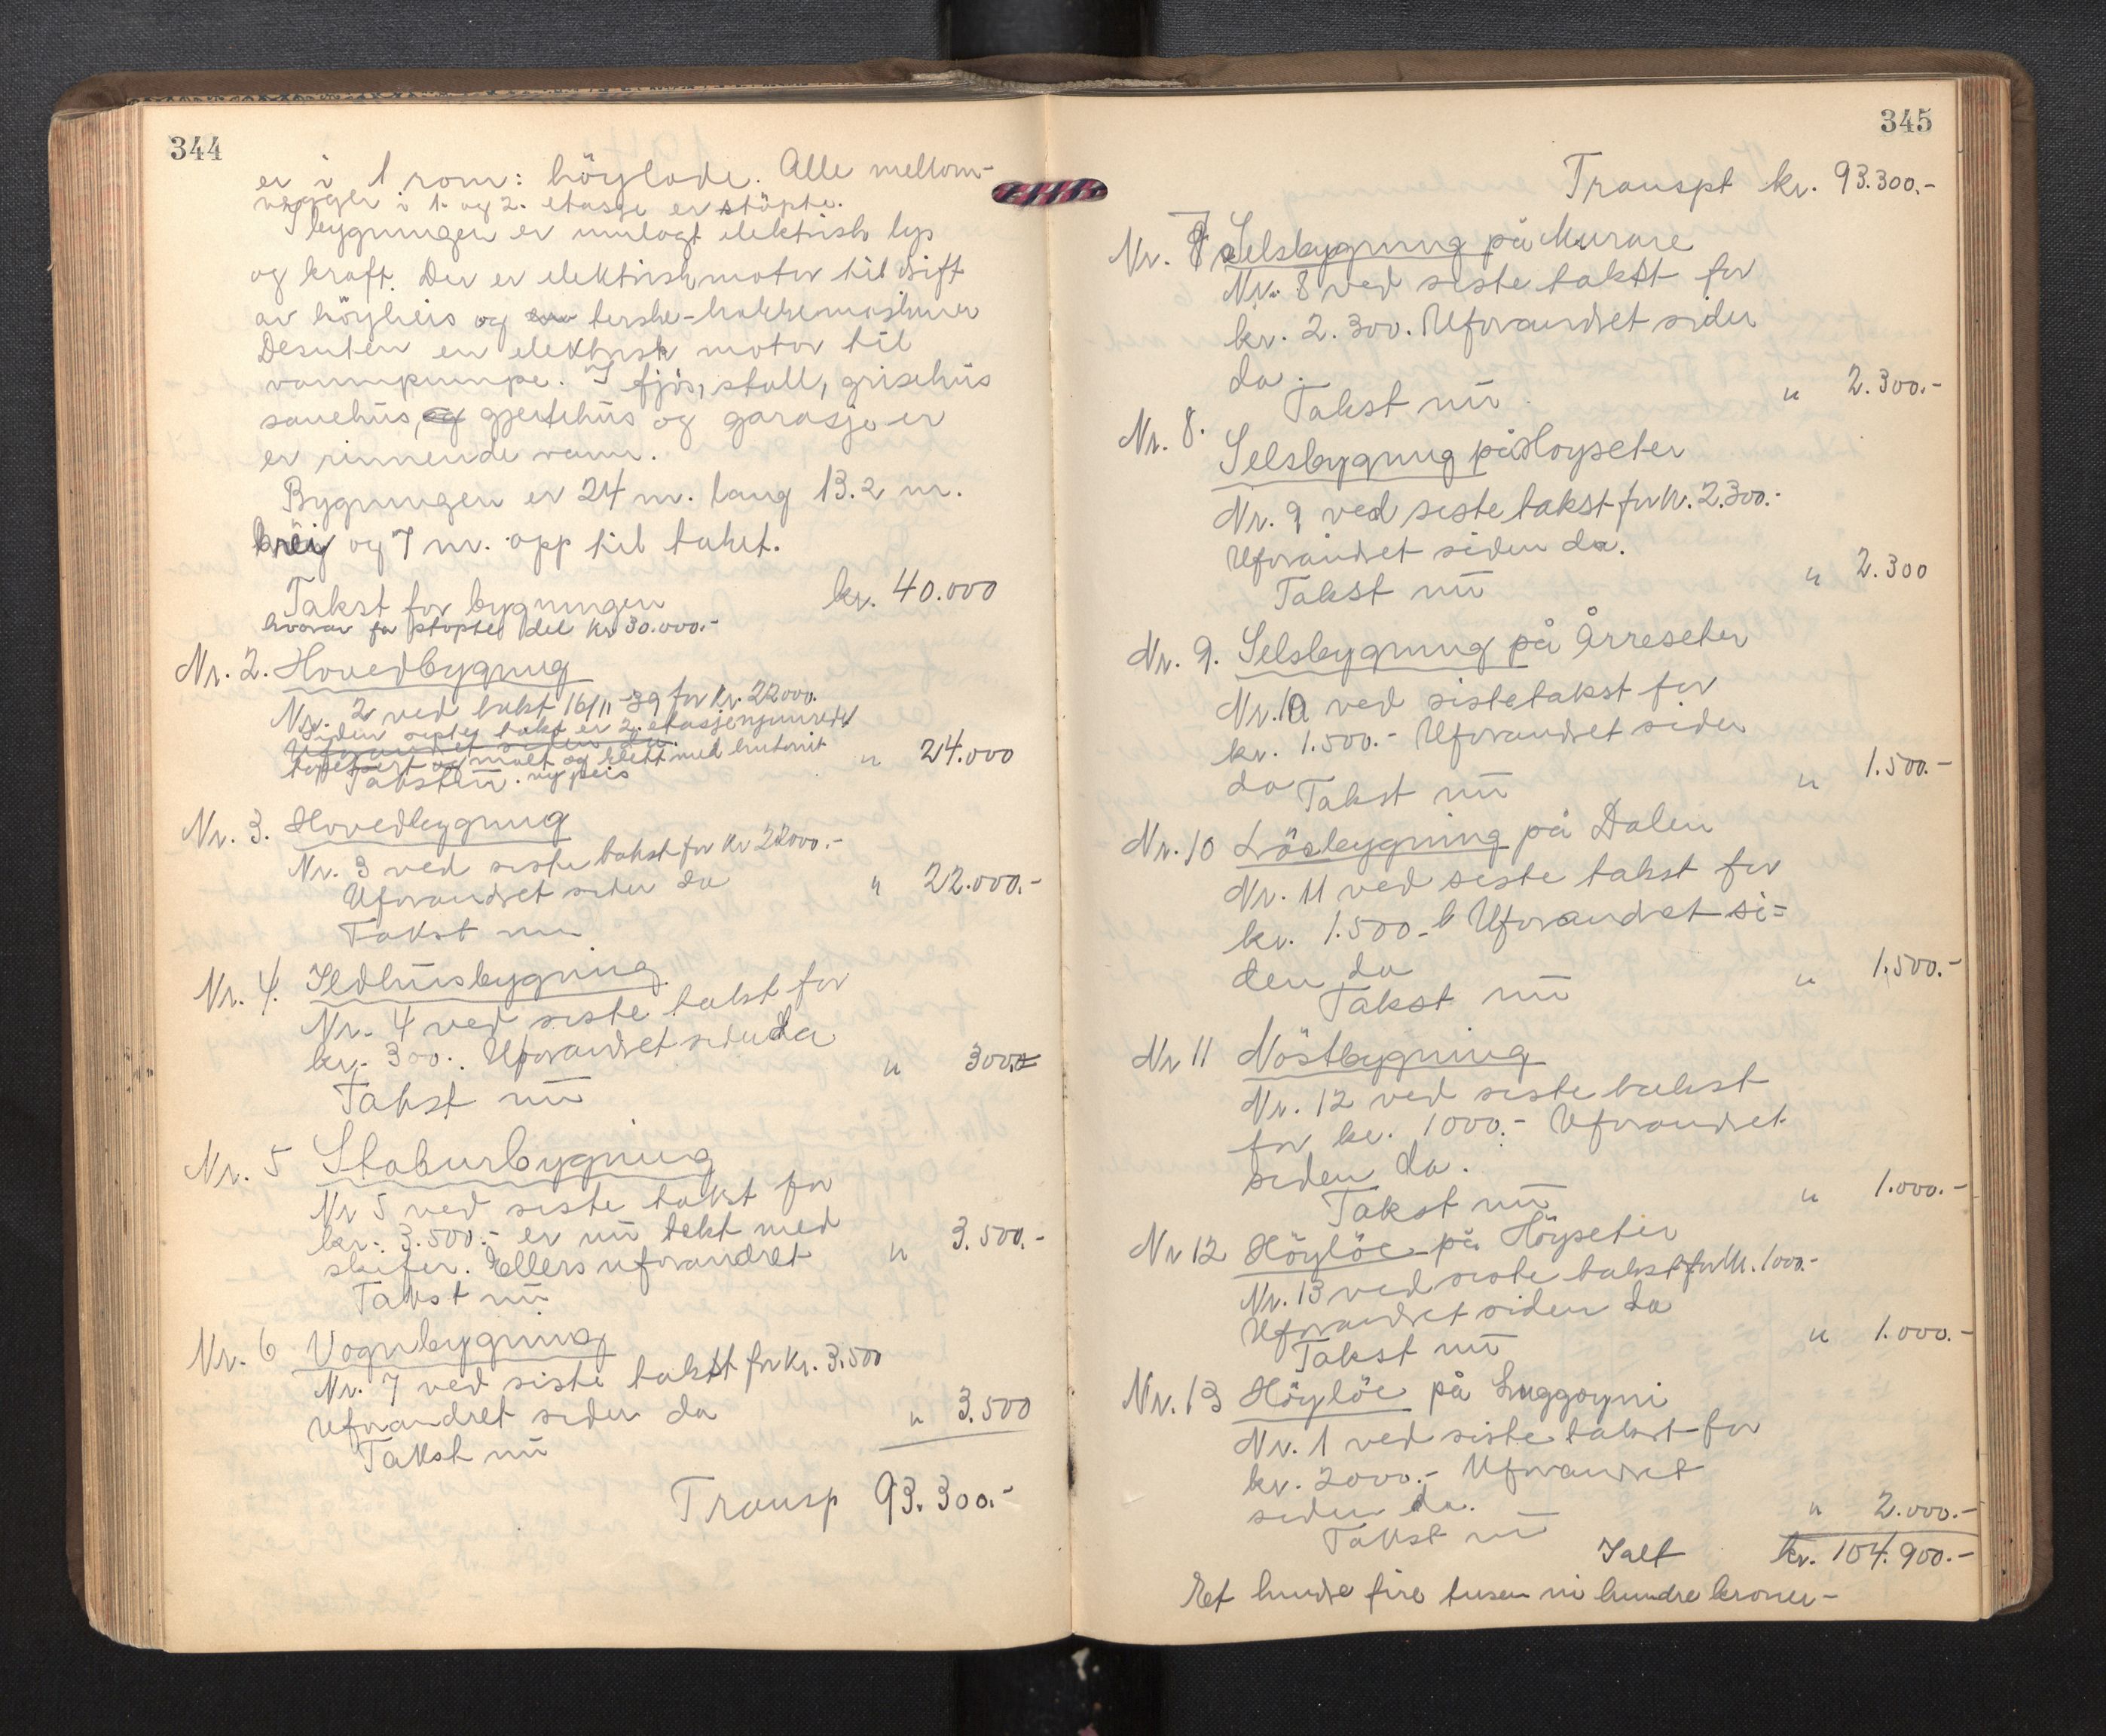 344
er i 1 rom: höylade. Alle mellom-
vegger i 1. og 2. etasje er stöpte.
I bygningen er innlagt elektrisk lys
og kraft. Der er elektrisk motor til drift
av höyheis og terske-hakkemaskiner
Desuten en elektrisk motor til
vannpumpe. I fjös, stall, grisehus
sauehus, og gjeitehus og garasje er
er rinnende vann.
Bygningen er 24 m. lang 13.2 m.
brei og 7 m. opp til taket.
Takst for bygningen kr. 40.000
hvorav for stöpte del kr 30.000.-
Nr. 2. Hovedbygning
Nr. 2 ved takst 16/11-39 for kr. 22000.
Siden siste takst er 2. etasje
Uforandret siden da.
tapetsert og malt og kledt med hutonit
Takst nu. ny peis " 24.000
Nr. 3. Hovedbygning
Nr. 3 ved siste takst for kr 22000.-
Uforandret siden da " 22.000.-
Takst nu
Nr. 4. Ildhusbygning
Nr. 4 ved siste takst for
kr. 300.. Uforandret siden da
" 300.-
Takst nu
Nr. 5 Staburbygning
Nr 5 ved siste takst for
kr. 3.500.- er nu tekt med
skifer. Ellers uforandret " 3.500.-
Takst nu
Nr. 6 Vognbygning
Nr. 7 ved siste takst for kr. 3.500
Uforandret siden da " 3.500
Takst nu
Transp 93.300.-
345
Transpt kr. 93.300.-
Nr. 7 Selsbygning på Murare
Nr. 8 ved siste takst for
kr. 2.300. Uforandret siden
da.
Takst nu " 2.300.-
Nr. 8.
Selsbygning på Hoyseter
Nr. 9 ved siste takst for kr. 2.300.-
Uforandret siden da.
Takst nu " 2.300
Nr. 9. Selsbygning på Årreseter
Nr. 10 ved siste takst for
kr. 1.500.- Uforandret siden
da Takst nu " 1.500.-
Nr. 10 Lösbygning på Dalen
Nr. 11 ved siste takst for
kr. 1.500.- Uforandret si=
den da
Takst nu " 1.500.-
Nr 11 Nöstbygning
Nr. 12 ved siste takst
for kr. 1000.- Uforandret
siden da.
Takst nu " 1.000.-
Nr 12 Höylöe på Höyseter
Nr. 13 ved siste takst for kr. 1000.-
Uforandret siden da
Takst nu " 1.000.-
Nr. 13 Höylöe på Luggoyni
Nr. 1 ved siste takst for
kr. 2000.- Uforandret
siden da.
Takst nu " 2.000.-
Ialt kr. 104.900.-
Et hundre fire tusen ni hundre kroner-